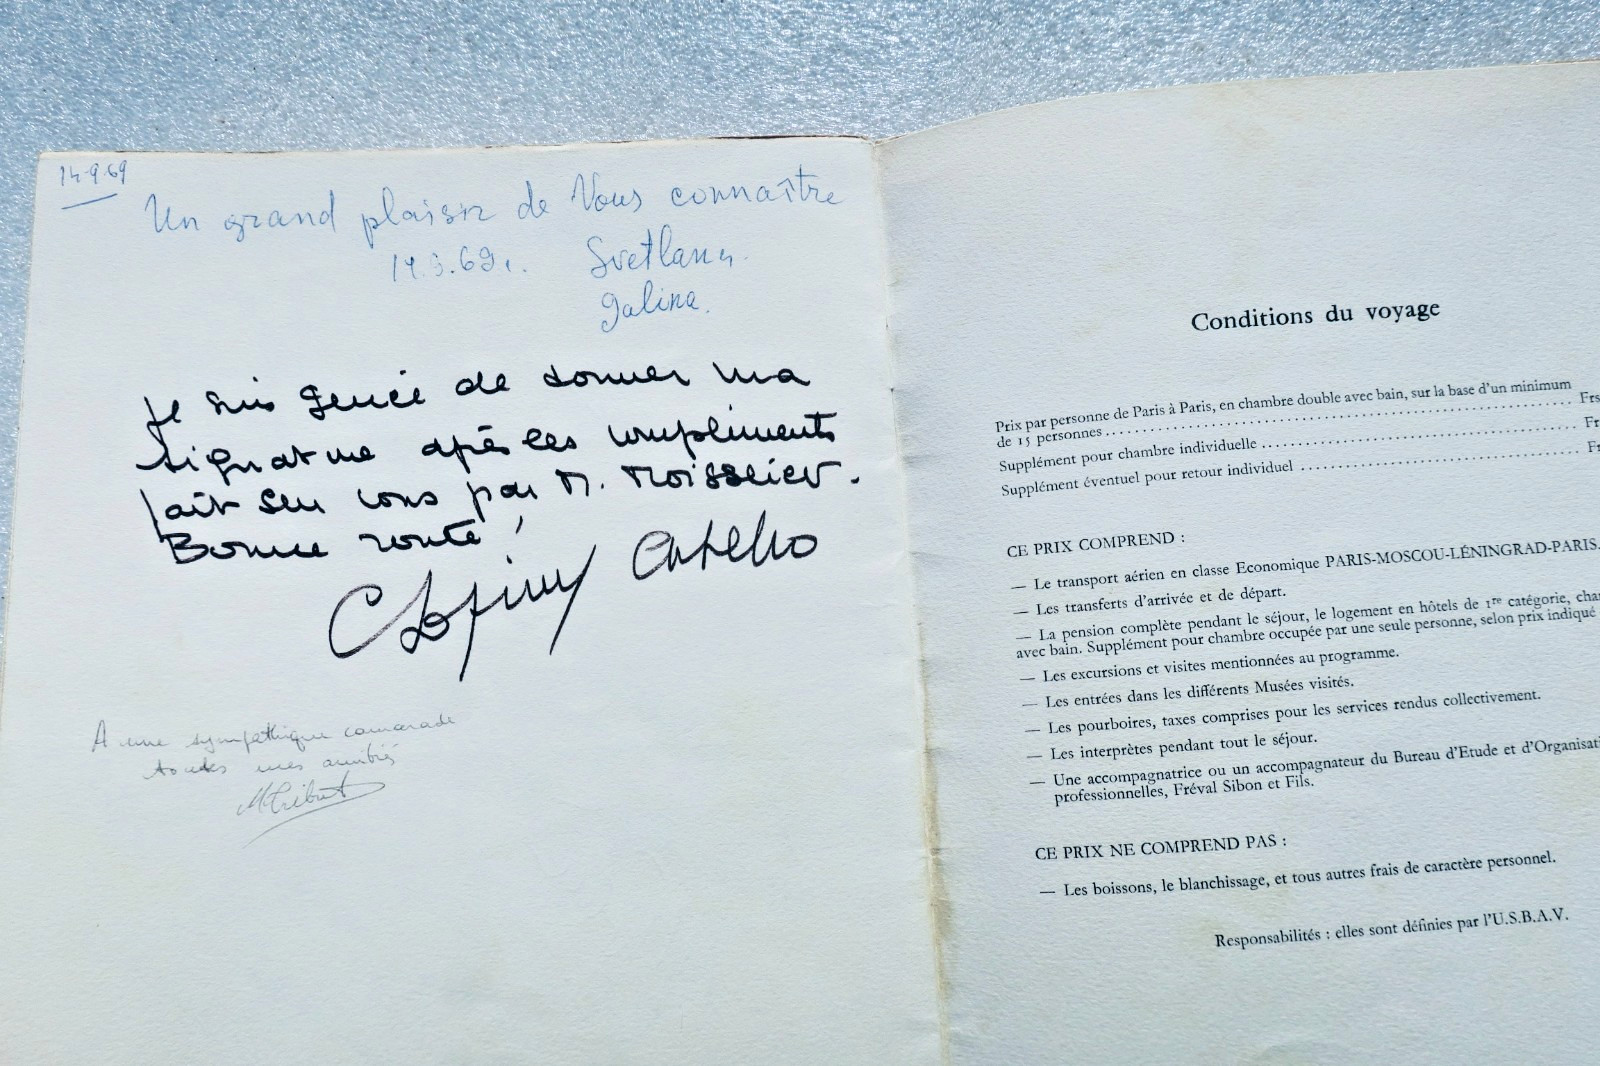 14-9-69
Un grand plaisir de Vous connaître
14.9.69 Svetlana
Galina.
Je suis gênée de donner ma
signature après les compliments
fait sur vous par M. Moisseiev.
Bonne route !
A une sympathique camarade
toutes mes amitiés
Conditions du voyage
Prix par personne de Paris à Paris, en chambre double avec bain, sur la base d'un minimum
de 15 personnes ........ Frs
Supplément pour chambre individuelle ........ Fr
Supplément éventuel pour retour individuel ........ Fr
CE PRIX COMPREND :
— Le transport aérien en classe Economique PARIS-MOSCOU-LÉNINGRAD-PARIS.
— Les transferts d'arrivée et de départ.
— La pension complète pendant le séjour, le logement en hôtels de 1re catégorie, cha
avec bain. Supplément pour chambre occupée par une seule personne, selon prix indiqué
— Les excursions et visites mentionnées au programme.
— Les entrées dans les différents Musées visités.
— Les pourboires, taxes comprises pour les services rendus collectivement.
— Les interprètes pendant tout le séjour.
— Une accompagnatrice ou un accompagnateur du Bureau d'Etude et d'Organisati
professionnelles, Fréval Sibon et Fils.
CE PRIX NE COMPREND PAS :
— Les boissons, le blanchissage, et tous autres frais de caractère personnel.
Responsabilités : elles sont définies par l'U.S.B.A.V.